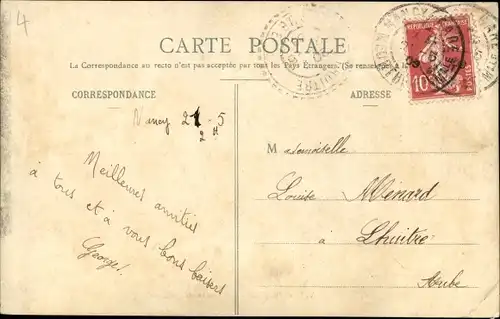 4
CARTE POSTALE
La Correspondance au recto n'est pas acceptée par tous les Pays Étrangers. (Se renseigner à la
CORRESPONDANCE
ADRESSE
REPUBLIQUE FRANÇAISE
10
POSTES
Nancy 21 5
Meilleures amitiés
à tous et à vous bons baisers
George!
Mademoiselle
Louise Ménard
à Lhuitre
Aube